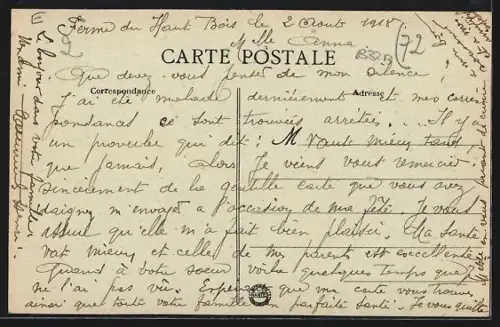 Ferme du Haut Bois le 2 Aout 1918
Mlle Anna
CARTE POSTALE
Que devez-vous penser de mon silence !
Correspondance
Adresse
J'ai été malade dernièrement et mes corres
pondances se sont trouvées arrêtées... Il y a
un proverbe qui dit : M Vaut mieux tard
que jamais, Alors Je viens vous remercier
sincèrement de la gentille carte que vous avez
daigné m'envoyer à l'occasion de ma fête. Je vous
assure qu'elle m'a fait bien plaisir. Ma santé
vat mieux et celle de mes parents est excellente
Quand à votre soeur voila quelques temps que
ne l'ai pas vu. Espérant que ma carte vous trouve
ainsi que toute votre famille en parfaite santé. Je vous quitte
Le bonjour dans votre famille
Un ami
72